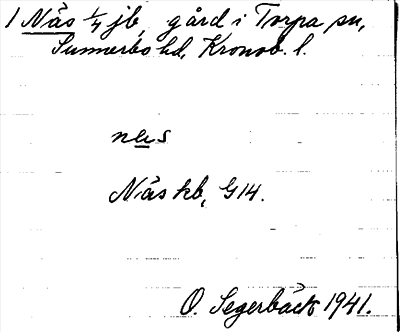 1 Näs 1/4 jb, gård i Torpa sn,
Sunnerbo hd, Kronob. l.
nɛs
Näs hb, G14.
O. Segerbäck 1941.